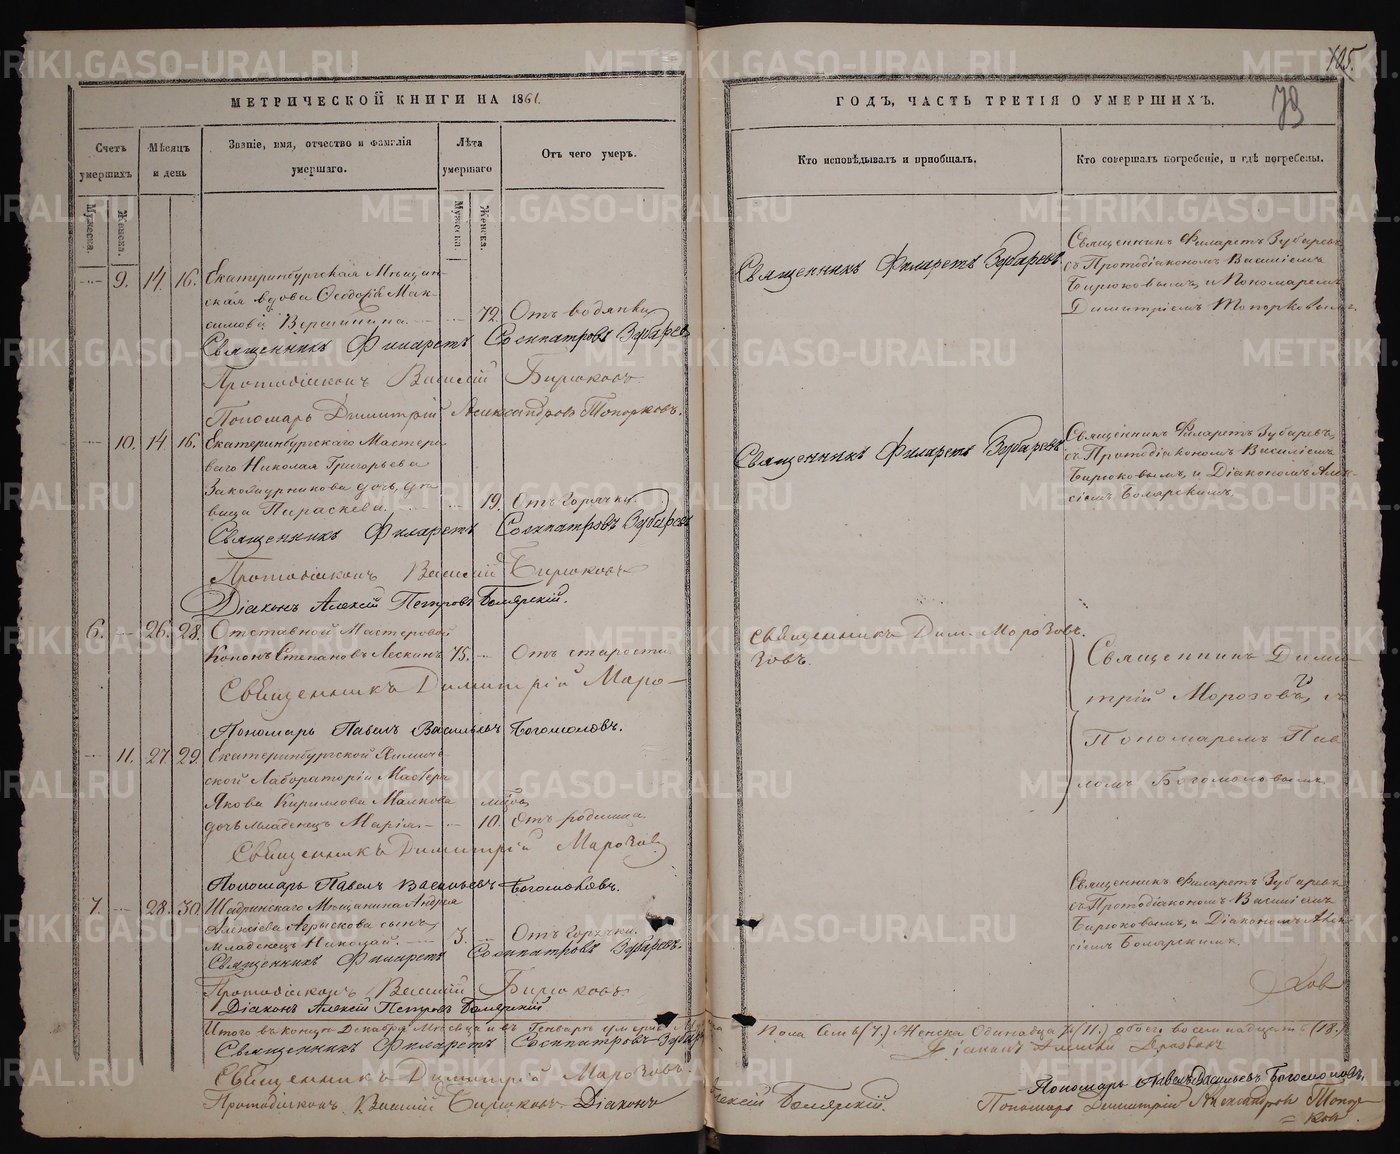 METRIKI.GASO-URAL.RU
105.
79
МЕТРИЧЕСКОЙ КНИГИ НА 1861.
Счетъ умершихъ
Мѣсяцъ и день
Званіе, имя, отчество и фамилія умершаго.
Лѣта умершаго
Отъ чего умеръ.
Мужеска.
Женска.
Мужеска.
Женска.
9. 14. 16. Екатеринбургская Мѣщан-
ская вдова Ѳеодора Мак-
симова Вершинина 72. Отъ водянки
Священникъ Филаретъ Сосипатровъ Зубаревъ
Протодіаконъ Василій Бирюковъ
Пономарь Димитрій Александровъ Топорковъ.
10. 14 16. Екатеринбургскаго Мастеро-
ваго Николая Григорьева
дочь, дѣ-
вица Параскева. 19. Отъ горячки.
Священникъ Филаретъ Сосипатровъ Зубаревъ
Протодіаконъ Василій Бирюковъ
Діаконъ Алексій Петровъ Боярскій.
6. 26. 28. Отставной Мастеровой
Кононъ Степановъ Лескинъ 75. Отъ старости.
Священникъ Димитрій Моро-
Пономарь Павелъ Васильевъ Богомоловъ.
11. 27. 29. Екатеринбургской Химиче-
ской Лабораторіи Мастера
Якова Кириллова Малкова мѣсяц.
дочь младенецъ Марія. 10. Отъ родимца.
Священникъ Димитрій Морозовъ
Пономарь Павелъ Васильевъ Богомоловъ.
7. 28. 30. Шадринскаго Мѣщанина Андрея
Алексіева сынъ,
младенецъ Николай. 3. Отъ горячки.
Священникъ Филаретъ Сосипатровъ Зубаревъ.
Протодіаконъ Василій Бирюковъ
Діаконъ Алексій Петровъ Боярскій
Итого въ концѣ Декабря Мѣсяца и въ Генварѣ умерло
Священникъ Филаретъ Сосипатровъ Зубар
Священникъ Димитрій Морозовъ.
Протодіаконъ Василій Бирюковъ. Діаконъ
ГОДЪ, ЧАСТЬ ТРЕТІЯ О УМЕРШИХЪ.
Кто исповѣдывалъ и пріобщалъ.
Кто совершалъ погребеніе, и гдѣ погребены.
Священникъ Филаретъ Зубаревъ
Священникъ Филаретъ Зубаревъ
съ Протодіакономъ Василіемъ
Бирюковымъ, и Пономаремъ
Димитріемъ Топорковымъ.
Священникъ Филаретъ Зубаревъ
Священникъ Филаретъ Зубаревъ,
съ Протодіакономъ Василіемъ
Бирюковымъ, и Діакономъ Алек-
сіемъ Боярскимъ.
Священникъ Дим. Морозовъ.
зовъ.
Священникъ Дими-
трій Морозовъ, съ
Пономаремъ Пав-
ломъ Богомоловымъ
Священникъ Филаретъ Зубаревъ
съ Протодіакономъ Василіемъ
Бирюковымъ, и Діакономъ Алек-
сіемъ Боярскимъ.
пола семь (7.) Женска Одинадцать (11.) обоего восемнадцать (18.)
Пономарь Павелъ Васильевъ Богомоловъ.
Алексій Боярскій.
Пономарь Димитрій Александровъ Топор-
= ковъ